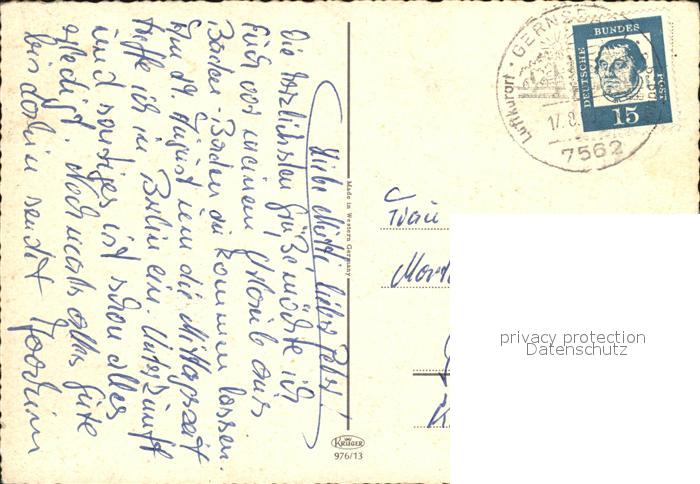 Liebe Mutti, lieber Peter!
Die herzlichsten Grüße möchte ich
Euch von meinem Urlaub aus
Baden-Baden da kommen lassen.
Am 19. August um die Mittagszeit
treffe ich in Berlin ein. Unterkunft
und sonstiges ist schon alles
erledigt. Nochmals alles Gute
bis dahin sendet Joachim
Made in Western Germany
KRÜGER
976/13
Luftkurort · GERNSB
17.8.
7562
DEUTSCHE BUNDES POST
15
Frau
privacy protection
Datenschutz